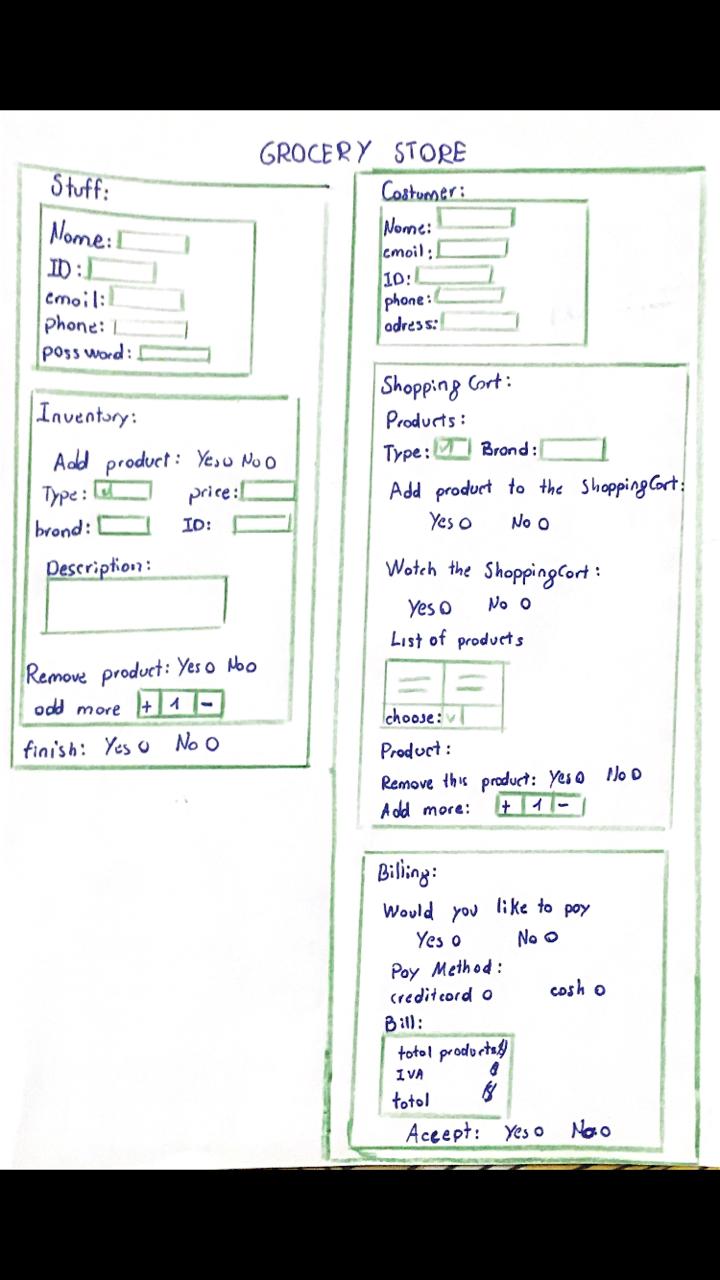 GROCERY STORE
Stuff:
Name:
ID:
email:
phone:
password:
Inventory:
Add product: Yes No
Type: price:
brand: ID:
Description:
Remove product: Yes No
add more + 1 -
finish: Yes No
Costumer:
Name:
email:
ID:
phone:
adress:
Shopping Cart:
Products:
Type: Brand:
Add product to the ShoppingCart:
Yes No
Watch the ShoppingCart:
Yes No
List of products
choose:
Product:
Remove this product: Yes No
Add more: + 1 -
Billing:
Would you like to pay
Yes No
Pay Method:
creditcard cash
Bill:
total products $
IVA $
total $
Accept: Yes No